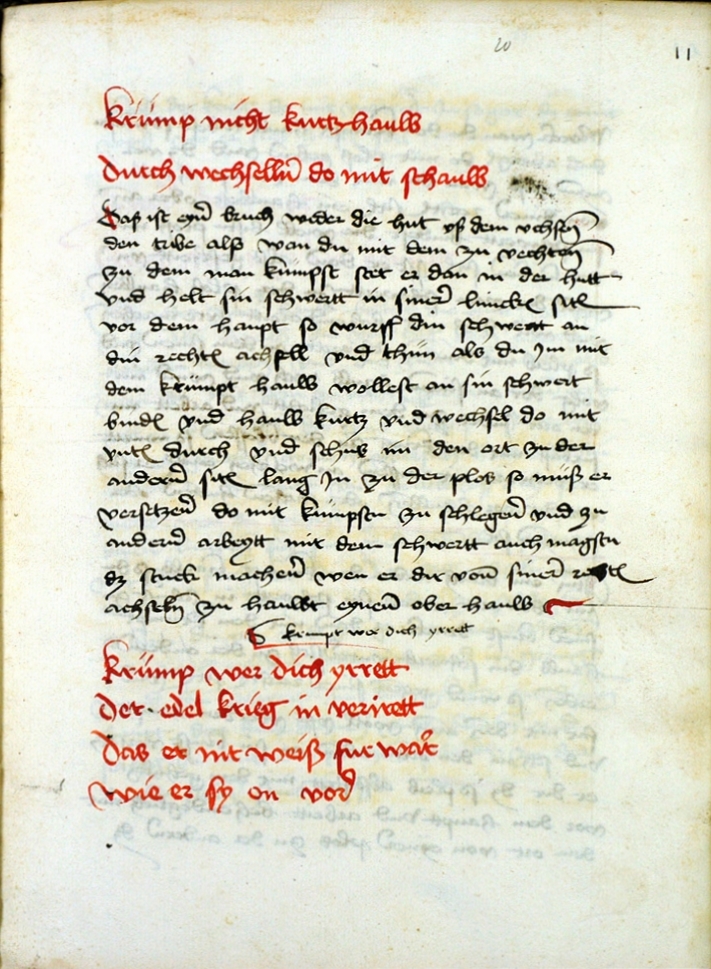 20
11
Krump nicht kurtz hauw
durch wechselln do mit schauw
Das ist eyn bruch weder die hut vß dem ochsen
den tribe alß wan du mit dem zu vechten
zu dem man kumpst stet er dan in der hutt
vnd helt sin schwertt in siner lincken siten
vor dem haupt so wurff din schwertt an
din rechten achsell vnd thun als du Im mit
dem krumpt hauw wollest an sin schwert
binden vnd hauw kurtz vnd wechsel do mit
vnten durch vnd schuß im den ort zu der
andern siten lang In zu der plos so muß er
versetzen do mit kumpstu zu schlegen vnd zu
andern arbeytt mit dem schwertt auch magstu
dz stuck machen wen er dir von siner rechten
achseln zu hauwt eynen ober hauw
krumpt wer dich yrrett
Krump wer dich yrrett
Der edel krieg in verirett
Das er nit weiß fur war
wie er sy on vor